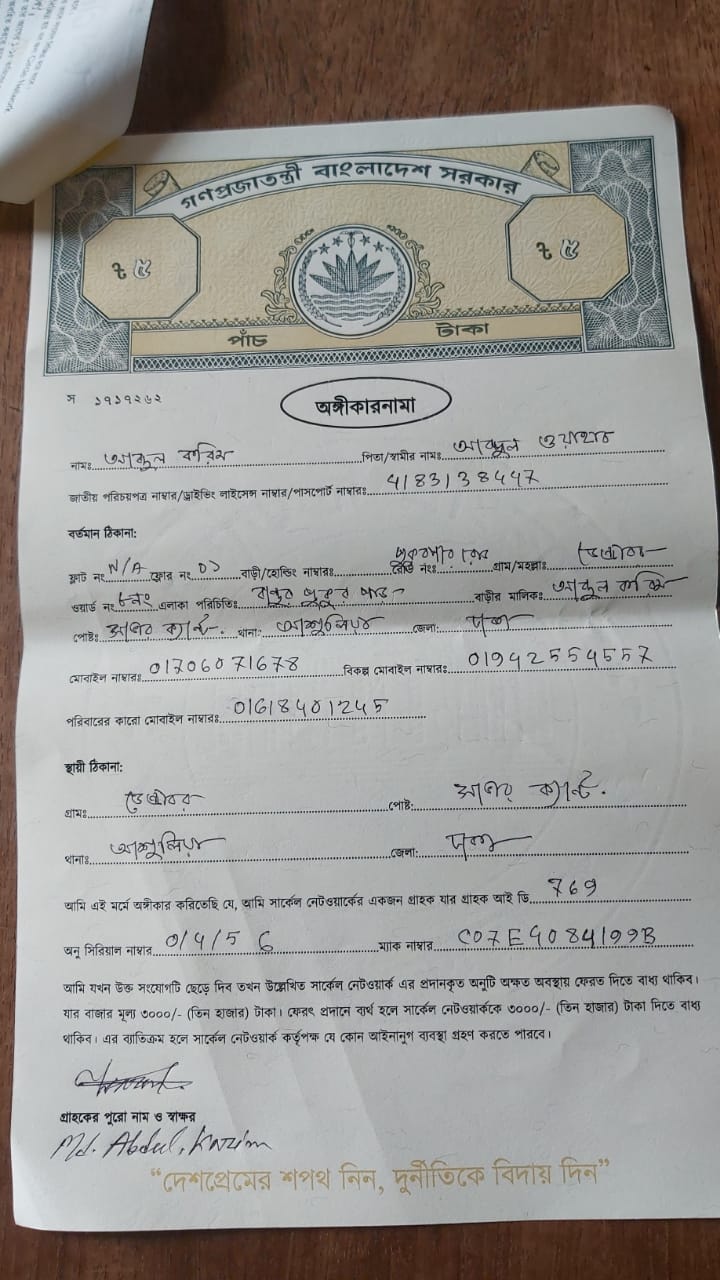 গণপ্রজাতন্ত্রী বাংলাদেশ সরকার
৳ ৫ ৳ ৫
পাঁচ টাকা
স ১৭১৭২৬২
অঙ্গীকারনামা
নামঃ আব্দুল করিম পিতা/স্বামীর নামঃ আব্দুল ওয়াহাব
জাতীয় পরিচয়পত্র নাম্বার/ড্রাইভিং লাইসেন্স নাম্বার/পাসপোর্ট নাম্বারঃ 4183138447
বর্তমান ঠিকানা:
ফ্লাট নং N/A ফ্লোর নং ০১ বাড়ী/হোল্ডিং নাম্বারঃ রোড নংঃ পুকুরপাড় রোড গ্রাম/মহল্লাঃ
ওয়ার্ড নং ৮নং এলাকা পরিচিতিঃ পুকুর পাড় বাড়ীর মালিকঃ আব্দুল করিম
পোষ্টঃ সাভার ক্যান্ট. থানাঃ আশুলিয়া জেলা: ঢাকা
মোবাইল নাম্বারঃ 01706071678 বিকল্প মোবাইল নাম্বারঃ 01942554557
পরিবারের কারো মোবাইল নাম্বারঃ 01618401245
স্থায়ী ঠিকানা:
গ্রামঃ পোষ্ট: সাভার ক্যান্ট.
থানাঃ আশুলিয়া জেলা: ঢাকা
আমি এই মর্মে অঙ্গীকার করিতেছি যে, আমি সার্কেল নেটওয়ার্কের একজন গ্রাহক যার গ্রাহক আই ডি 769
অনু সিরিয়াল নাম্বার 0/4/5 6 ম্যাক নাম্বার C07E4084199B
আমি যখন উক্ত সংযোগটি ছেড়ে দিব তখন উল্লেখিত সার্কেল নেটওয়ার্ক এর প্রদানকৃত অনুটি অক্ষত অবস্থায় ফেরত দিতে বাধ্য থাকিব।
যার বাজার মূল্য ৩০০০/- (তিন হাজার) টাকা। ফেরৎ প্রদানে ব্যর্থ হলে সার্কেল নেটওয়ার্ককে ৩০০০/- (তিন হাজার) টাকা দিতে বাধ্য
থাকিব। এর ব্যতিক্রম হলে সার্কেল নেটওয়ার্ক কর্তৃপক্ষ যে কোন আইনানুগ ব্যবস্থা গ্রহণ করতে পারবে।
গ্রাহকের পুরো নাম ও স্বাক্ষর
Md. Abdul, Karim
“দেশপ্রেমের শপথ নিন, দুর্নীতিকে বিদায় দিন”